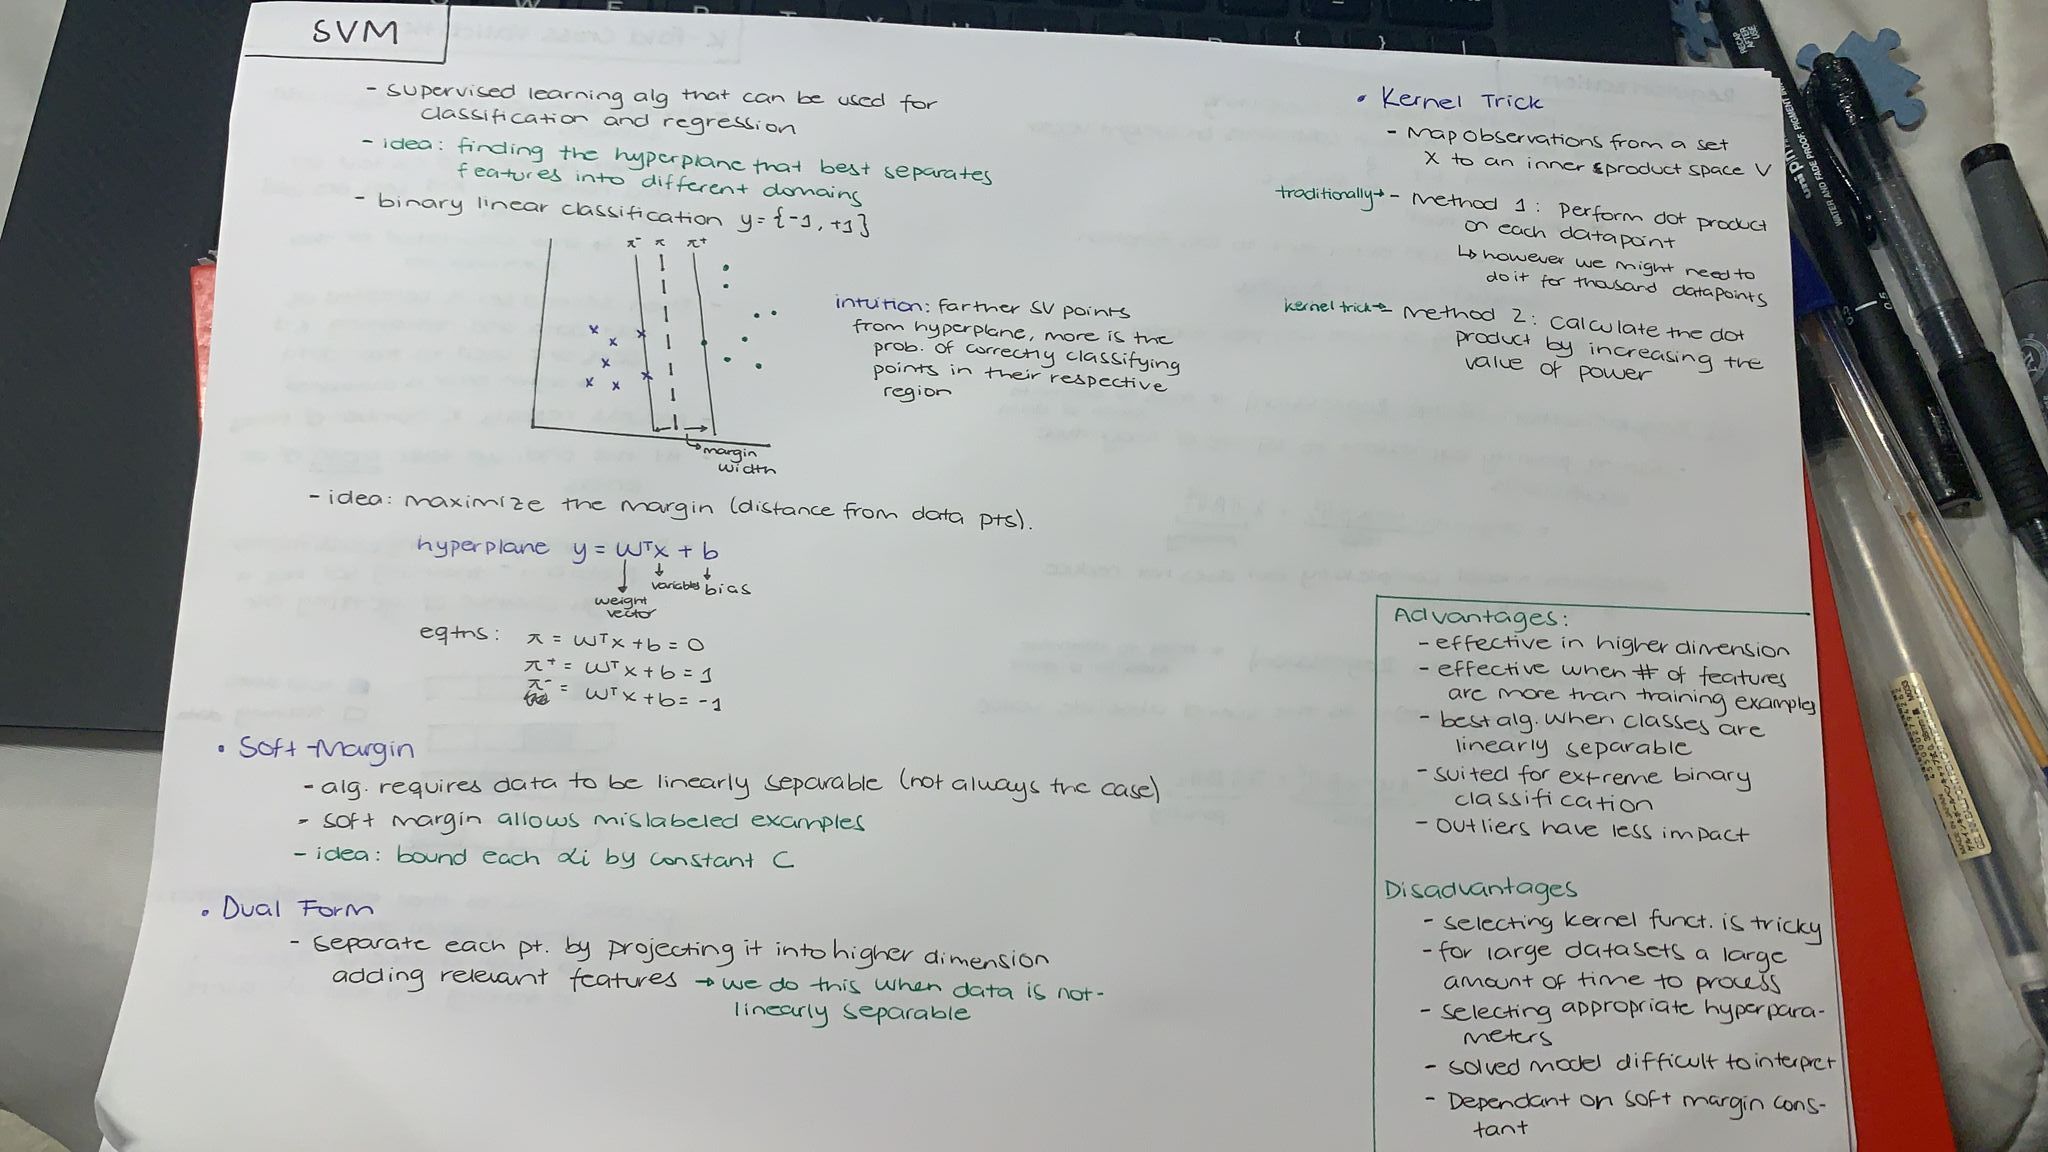 SVM
- supervised learning alg that can be used for
classification and regression
- idea: finding the hyperplane that best separates
features into different domains
- binary linear classification y = {-1, +1}
π⁻ π π⁺
margin
width
intuition: farther SV points
from hyperplane, more is the
prob. of correctly classifying
points in their respective
region
- idea: maximize the margin (distance from data pts).
hyperplane y = wᵀx + b
weight
vector
variables
bias
eqtns: π = wᵀx + b = 0
π⁺ = wᵀx + b = 1
π⁻ = wᵀx + b = -1
• Soft-Margin
- alg. requires data to be linearly separable (not always the case)
- soft margin allows mislabeled examples
- idea: bound each αi by constant C
• Dual Form
- separate each pt. by projecting it into higher dimension
adding relevant features → we do this when data is not-
linearly separable
• Kernel Trick
- Map observations from a set
X to an inner product space V
traditionally → - Method 1: perform dot product
on each datapoint
↳ however we might need to
do it for thousand datapoints
kernel trick → Method 2: calculate the dot
product by increasing the
value of power
Advantages:
- effective in higher dimension
- effective when # of features
are more than training examples
- best alg. when classes are
linearly separable
- suited for extreme binary
classification
- outliers have less impact
Disadvantages
- selecting kernel funct. is tricky
- for large datasets a large
amount of time to process
- selecting appropriate hyperpara-
meters
- solved model difficult to interpret
- Dependant on soft margin cons-
tant
RECAP
AFTER
USE
uni pin
WATER AND FADE PROOF, PIGMENT INK